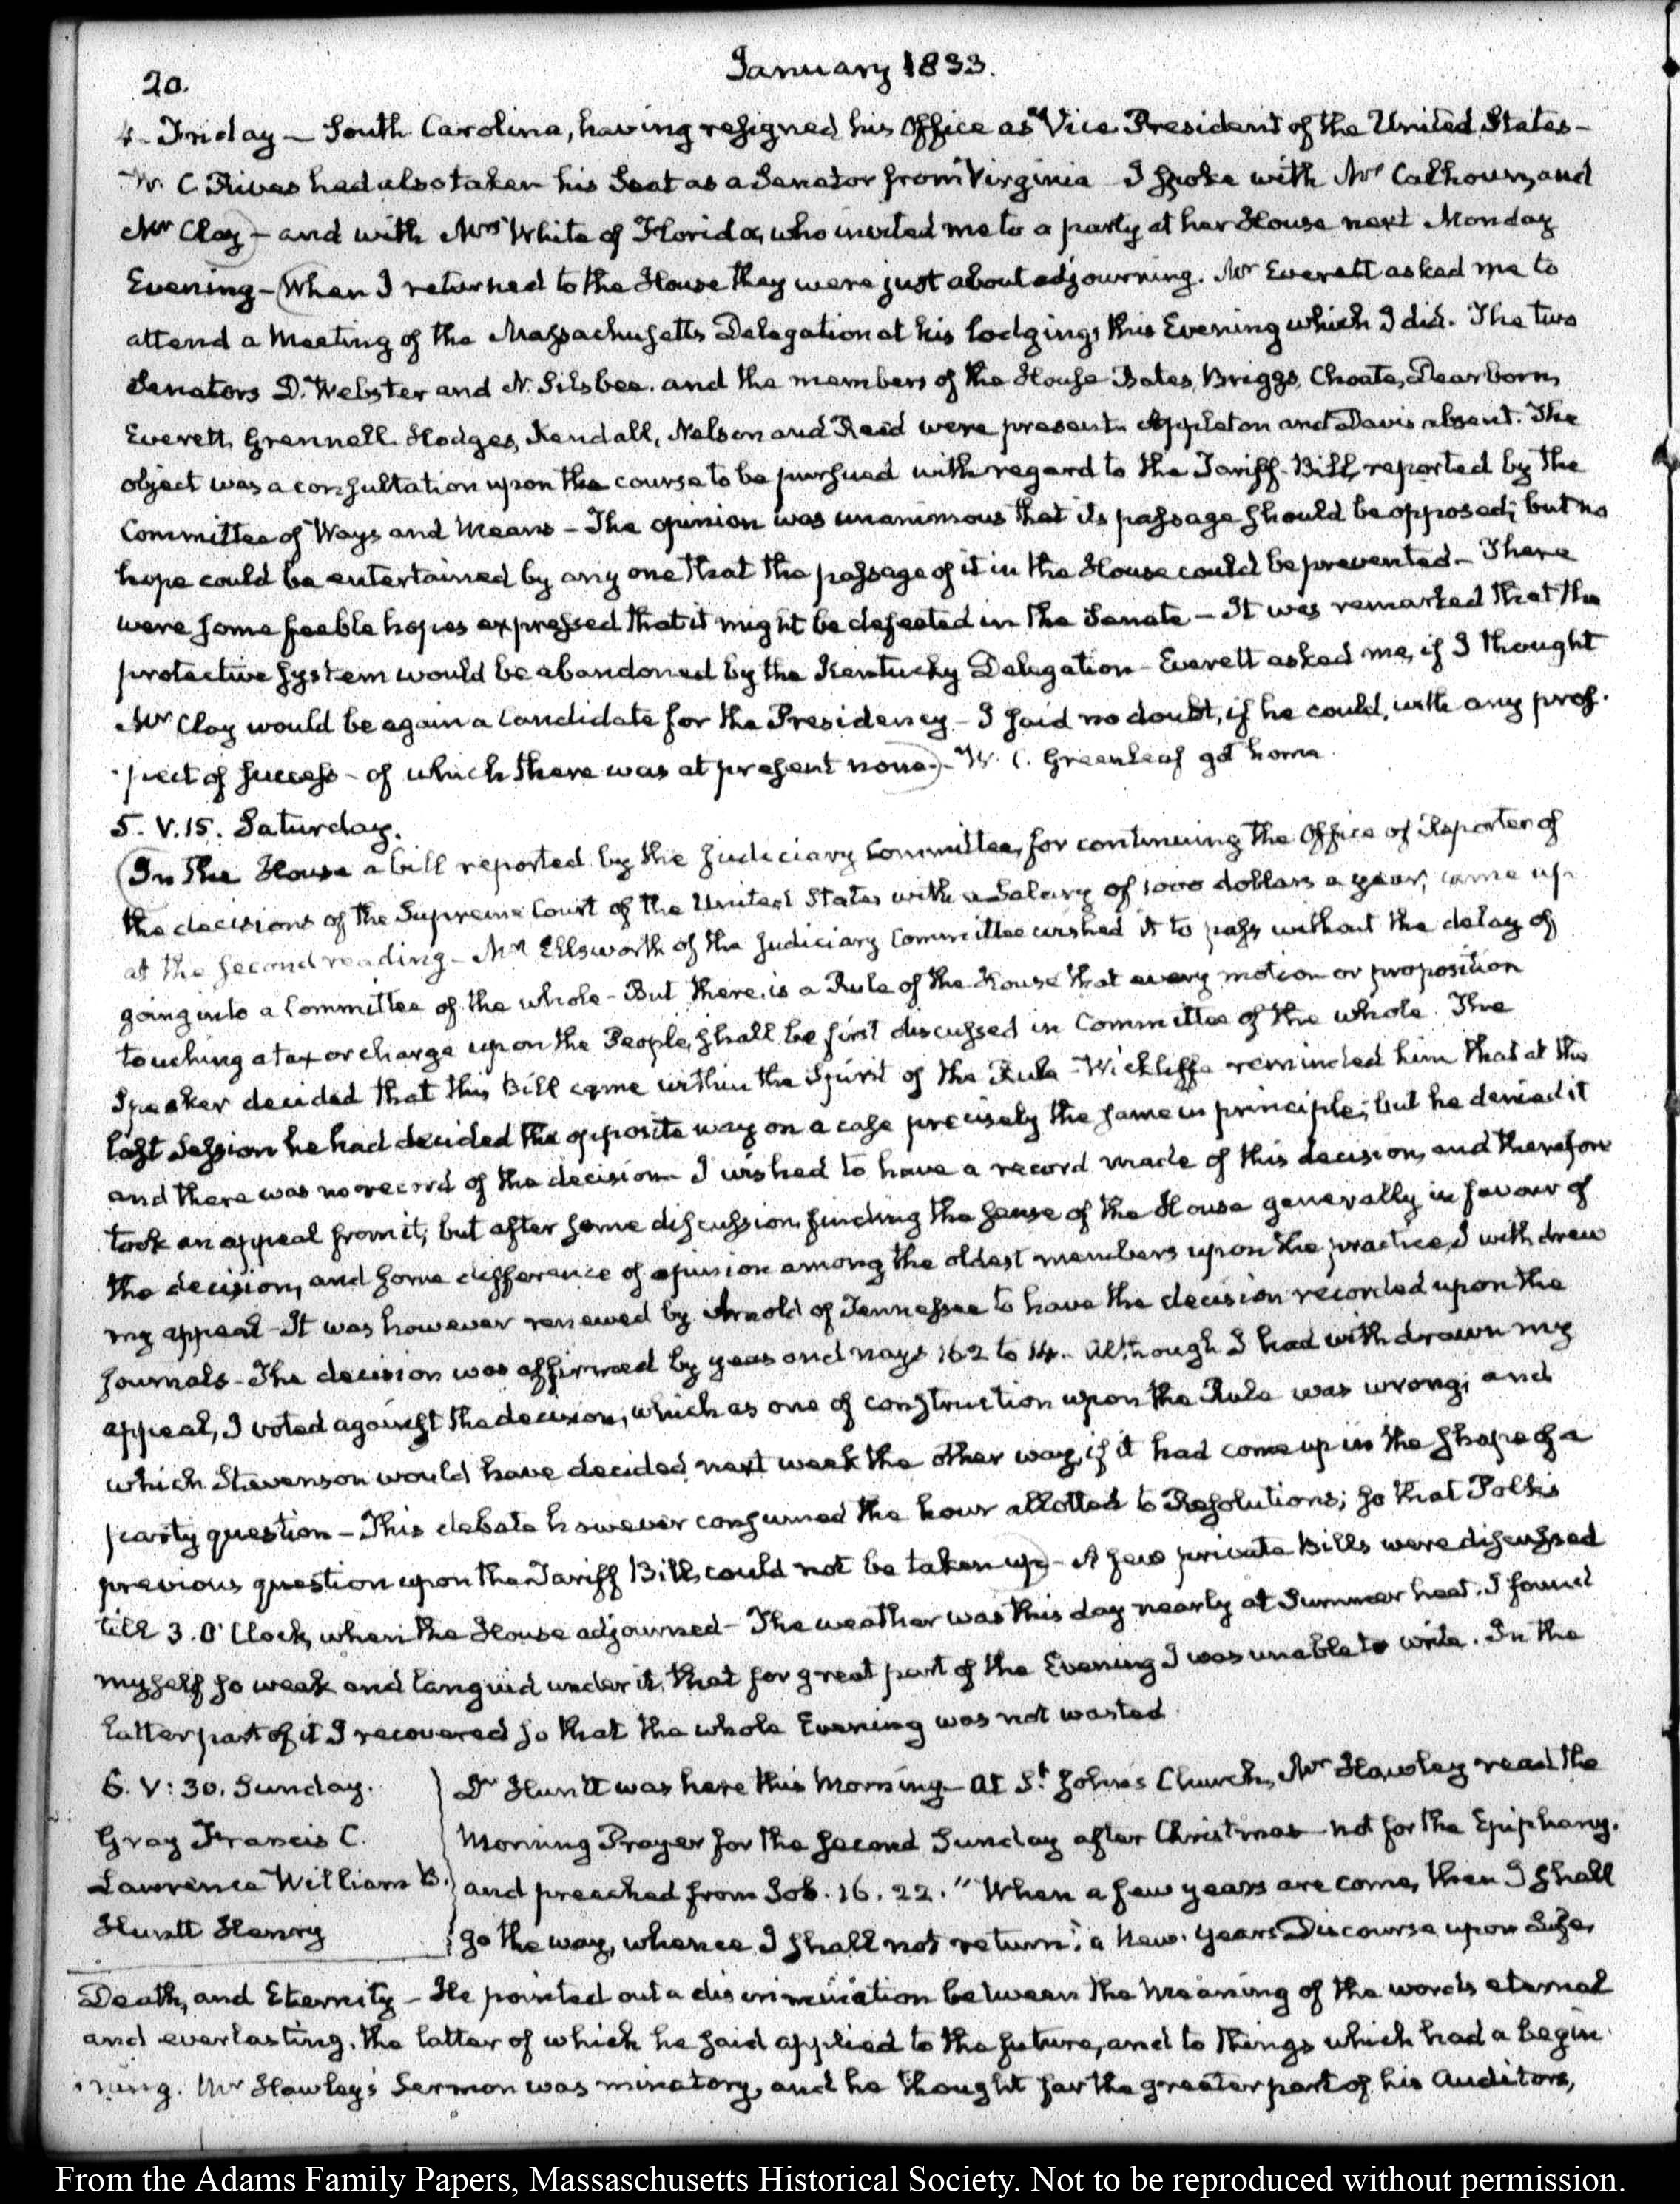 20.
January 1833.
4. Friday — South Carolina, having resigned his Office as Vice President of the United States —
W. C. Rives had also taken his Seat as a Senator from Virginia I spoke with Mr Calhoun, and
Mr Clay — and with Mrs White of Florida, who invited me to a party at her House next Monday
Evening — When I returned to the House they were just about adjourning. Mr Everett asked me to
attend a Meeting of the Massachusetts Delegation at his lodgings this Evening which I did. The two
Senators D. Webster and N. Silsbee. and the members of the House Bates, Briggs, Choate, Dearborn,
Everett, Grennell Hodges, Kendall, Nelson and Reed were present. Appleton and Davis absent. The
object was a consultation upon the course to be pursued with regard to the Tariff-Bill, reported by the
Committee of Ways and Means — The opinion was unanimous that its passage should be opposed; but no
hope could be entertained by any one that the passage of it in the House could be prevented — There
were some feeble hopes expressed that it might be defeated in the Senate — It was remarked that the
protective system would be abandoned by the Kentucky Delegation — Everett asked me, if I thought
Mr Clay would be again a Candidate for the Presidency — I said no doubt, if he could, with any pros-
pect of success — of which there was at present none. — W. C. Greenleaf got home
5. V.15. Saturday.
In the House a bill reported by the Judiciary Committee, for continuing the Office of Reporter of
the decisions of the Supreme Court of the United States with a Salary of 1000 dollars a year, came up
at the second reading — Mr Ellsworth of the Judiciary Committee wished it to pass without the delay of
going into a Committee of the whole — But there is a Rule of the House that every motion or proposition
touching a tax or charge upon the People, shall be first discussed in Committee of the whole. The
Speaker decided that this Bill came within the Spirit of the Rule — Wickliffe reminded him that at the
last Session he had decided the opposite way on a case precisely the same in principle; but he denied it
and there was no record of the decision — I wished to have a record made of this decision, and therefore
took an appeal from it; but after some discussion, finding the sense of the House generally in favour of
the decision, and some difference of opinion among the oldest members upon the practice, I withdrew
my appeal — It was however renewed by Arnold of Tennessee to have the decision recorded upon the
journals — The decision was affirmed by yeas and nays 162 to 14 — Although I had withdrawn my
appeal, I voted against the decision, which as one of construction upon the Rule was wrong; and
which Stevenson would have decided next week the other way, if it had come up in the shape of a
party question — This debate however consumed the hour allotted to Resolutions; so that Polk's
previous question upon the Tariff Bill, could not be taken up — A few private Bills were discussed
till 3. O'Clock, when the House adjourned — The weather was this day nearly at Summer heat. I found
myself so weak and languid under it, that for great part of the Evening I was unable to write. In the
latter part of it I recovered so that the whole Evening was not wasted.
6. V:30. Sunday.
Gray Francis C.
Lawrence William B.
Huntt Henry
Dr Huntt was here this Morning — At St John's Church, Mr Hawley read the
Morning Prayer for the second Sunday after Christmas — not for the Epiphany.
and preached from Job. 16. 22. "When a few years are come, then I shall
go the way, whence I shall not return": a New-Years Discourse upon Life,
Death, and Eternity — He pointed out a discrimination between the meaning of the words eternal
and everlasting. the latter of which he said applied to the future, and to things which had a begin-
ning. Mr Hawley's Sermon was minatory, and he thought far the greater part of his Auditors,
From the Adams Family Papers, Massaschusetts Historical Society. Not to be reproduced without permission.